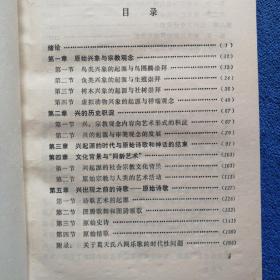 目录
绪论 (1)
第一章 原始兴象与宗教观念
第一节 鸟类兴象的起源与鸟图腾崇拜
第二节 鱼类兴象的起源与生殖崇拜
第三节 树木兴象的起源与社树崇拜
第四节 虚拟动物兴象的起源与祥瑞观念
第二章 兴的历史积淀
第一节 兴，宗教观念内容向艺术形式的积淀
第二节 兴的起源与审美观念的发展
第三章 兴起源的时代与原始诗歌和神话的结束
第四章 文化背景与“同龄艺术”
第一节 兴起源的社会宗教文化背景
第二节 原始宗教与人类的艺术活动
第五章 兴出现之前的诗歌——原始诗歌
第一节 诗歌艺术的起源
第二节 图腾歌舞和图腾颂歌
第三节 原始史诗
第四节 原始情歌
附录：关于葛天氏八阕乐歌的时代性问题